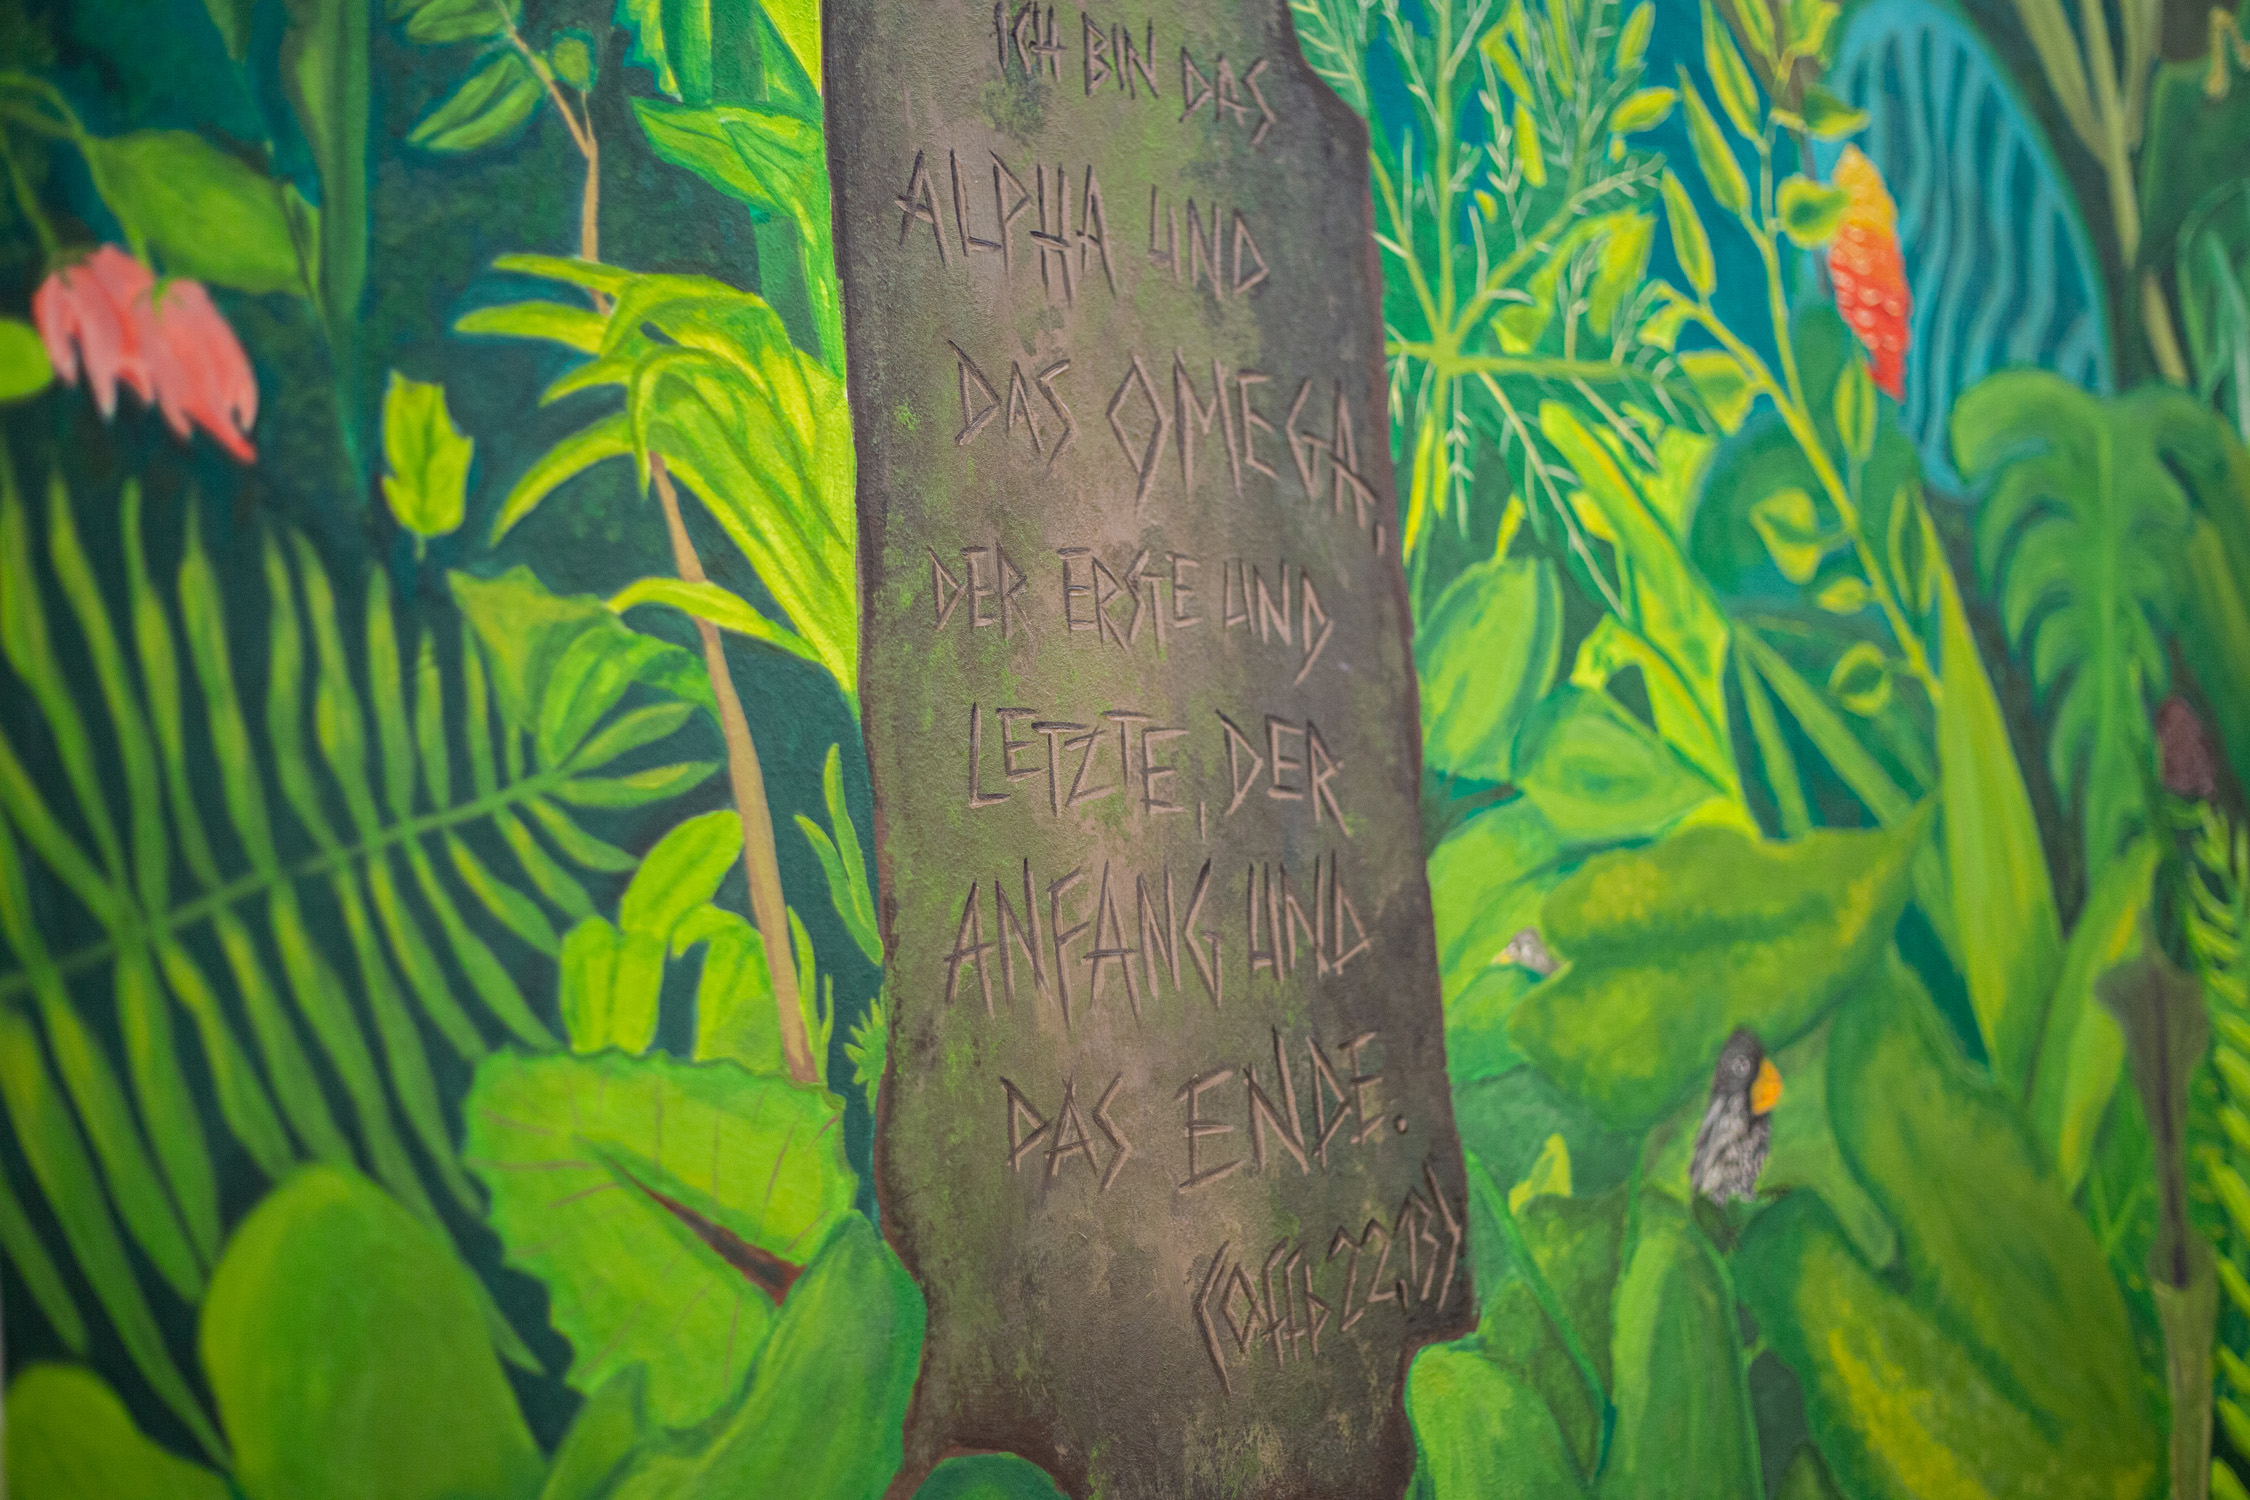 ICH BIN DAS
ALPHA UND
DAS OMEGA,
DER ERSTE UND
LETZTE, DER
ANFANG UND
DAS ENDE.
(Offb 22,13)